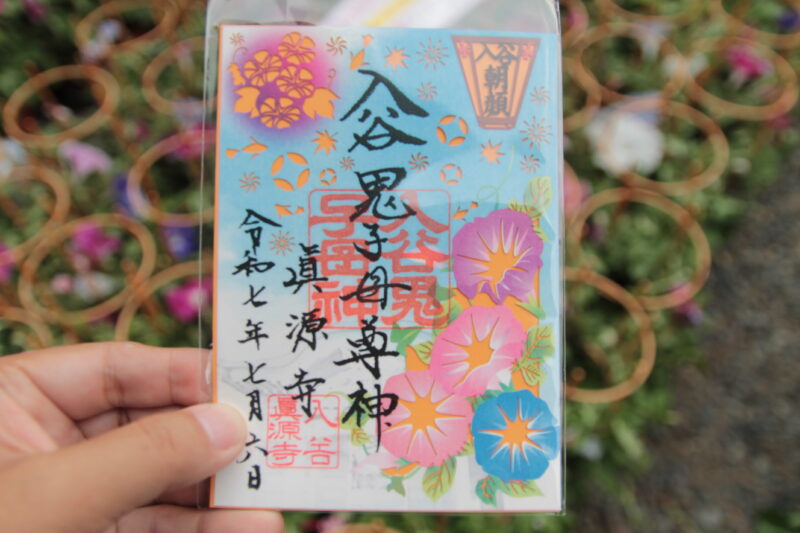 入谷
朝顔
入谷鬼子母尊神
眞源寺
令和七年七月六日
入谷鬼
子母神
入谷
眞源寺